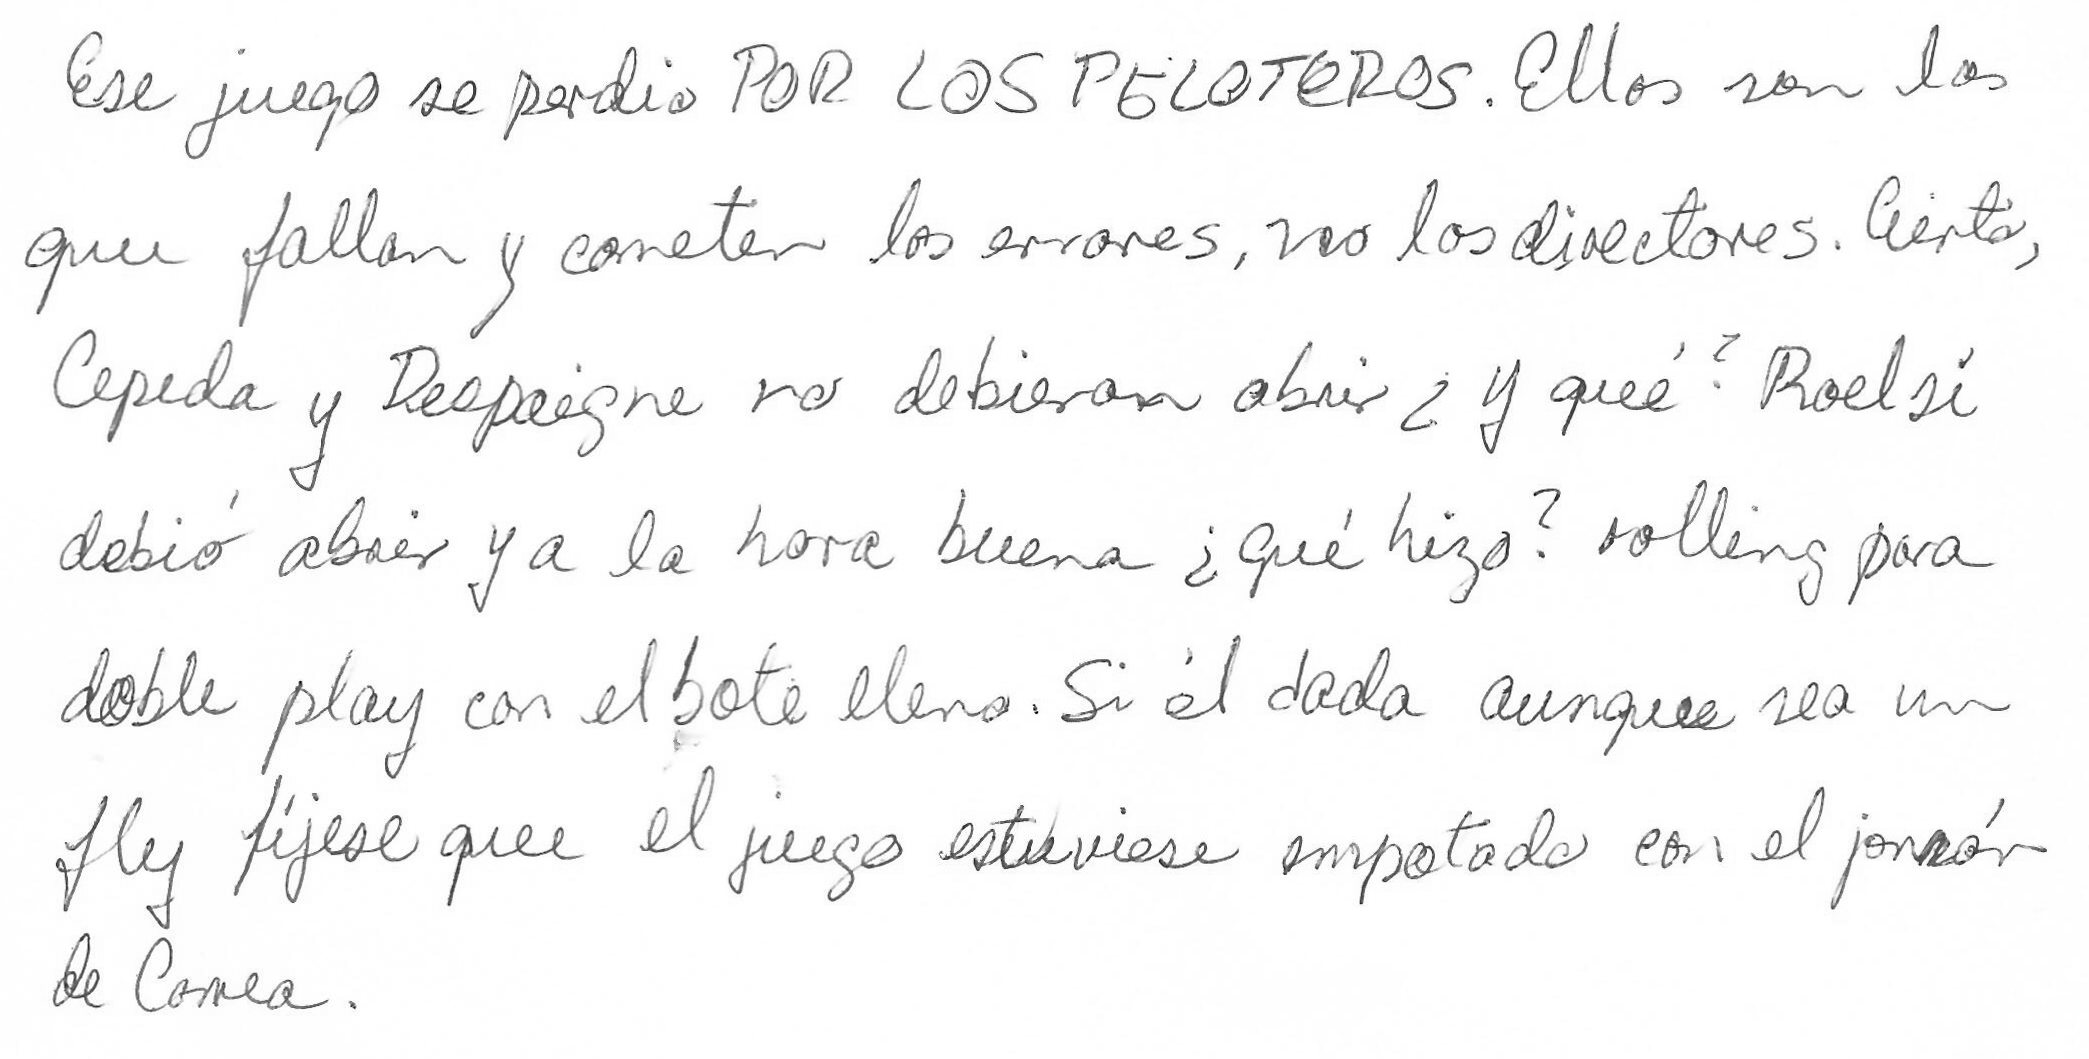 Ese juego se perdio POR LOS PELOTEROS. Ellos son los
que fallan y cometen los errores, no los directores. Cierto,
Cepeda y Despaigne no debieron abrir ¿y qué? Roel sí
debió abrir y a la hora buena ¿qué hizo? rolling para
doble play con el bote lleno. Si él dada aunque sea un
fly fíjese que el juego estuviese empatado con el jonrón
de Correa.